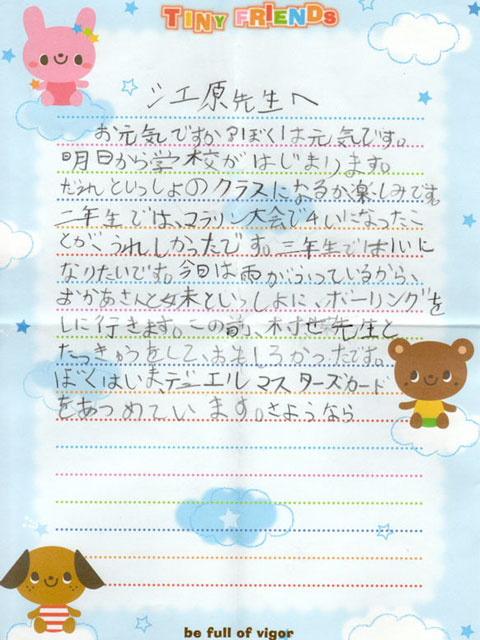 TINY FRIENDS
シエ原先生へ
お元気ですか?ぼくは元気です。
明日から学校がはじまります。
だれといっしょのクラスになるか楽しみです
二年生では、マラソン大会で4いになったこ
とが、うれしかったです。三年生では1いに
なりたいです。今日は雨がふっているから、
おかあさんと妹といっしょに、ボーリングを
しに行きます。この前、村世先生と
たっきゅうをして、おもしろかったです。
ぼくはいま、デュエルマスターズカード
をあつめています。さようなら
be full of vigor